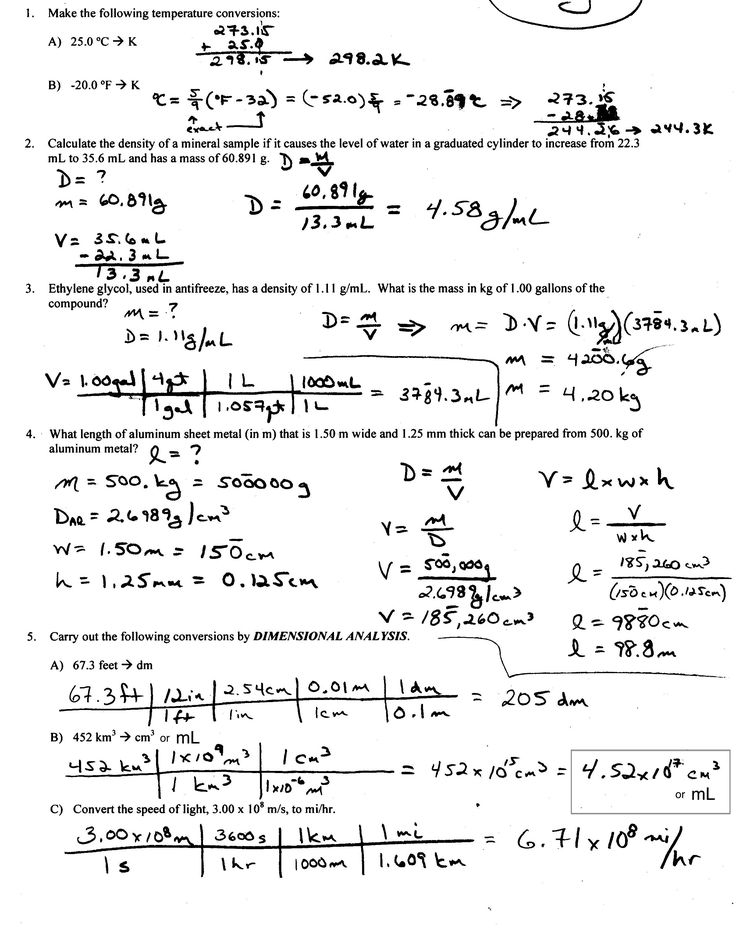 1. Make the following temperature conversions:
A) 25.0 °C → K
273.15
+ 25.0
298.15 → 298.2K
B) -20.0 °F → K
°C = 5/9 (°F - 32) = (-52.0) 5/9 = -28.89°C ⇒
exact
273.15
- 28.
244.26 → 244.3K
2. Calculate the density of a mineral sample if it causes the level of water in a graduated cylinder to increase from 22.3
mL to 35.6 mL and has a mass of 60.891 g. D = M/V
D = ?
m = 60.891g
V = 35.6mL
- 22.3mL
13.3mL
D = 60.891g / 13.3mL = 4.58g/mL
3. Ethylene glycol, used in antifreeze, has a density of 1.11 g/mL. What is the mass in kg of 1.00 gallons of the
compound?
m = ?
D = 1.11g/mL
D = m/V ⇒ m = D·V = (1.11g/mL)(3784.3mL)
m = 4200.6g
V = 1.00gal | 4qt | 1L | 1000mL
1gal | 1.057qt | 1L
= 3784.3mL
m = 4.20kg
4. What length of aluminum sheet metal (in m) that is 1.50 m wide and 1.25 mm thick can be prepared from 500. kg of
aluminum metal? l = ?
m = 500.kg = 500000g
D = 2.6989g/cm³
w = 1.50m = 150cm
h = 1.25mm = 0.125cm
D = m/V
V = m/D
V = 500,000g / 2.6989g/cm³
V = 185,260cm³
V = l×w×h
l = V / w×h
l = 185,260cm³ / (150cm)(0.125cm)
l = 9880cm
l = 98.8m
5. Carry out the following conversions by DIMENSIONAL ANALYSIS.
A) 67.3 feet → dm
67.3ft | 12in | 2.54cm | 0.01m | 1dm
1ft | 1in | 1cm | 0.1m
= 205 dm
B) 452 km³ → cm³ or mL
452 km³ | 1×10⁹m³ | 1cm³
1 km³ | 1×10⁻⁶m³
= 452×10¹⁵cm³ = 4.52×10¹⁷ cm³
or mL
C) Convert the speed of light, 3.00 x 10⁸ m/s, to mi/hr.
3.00×10⁸m | 3600s | 1km | 1mi
1s | 1hr | 1000m | 1.609km
= 6.71×10⁸ mi/hr